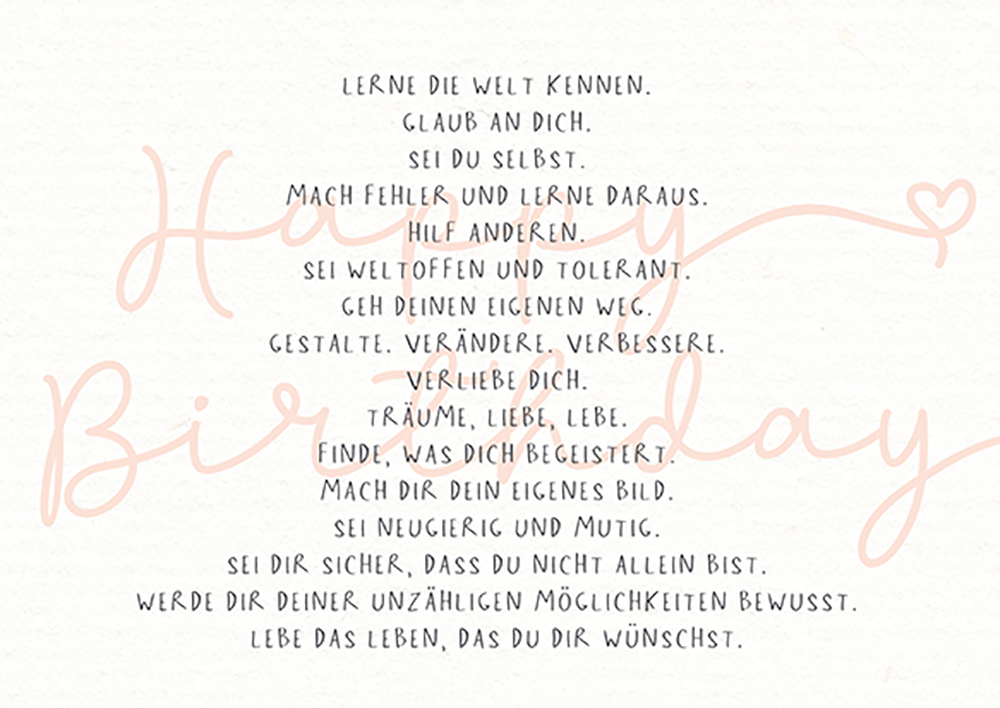 LERNE DIE WELT KENNEN.
GLAUB AN DICH.
SEI DU SELBST.
MACH FEHLER UND LERNE DARAUS.
HILF ANDEREN.
SEI WELTOFFEN UND TOLERANT.
GEH DEINEN EIGENEN WEG.
GESTALTE. VERÄNDERE. VERBESSERE.
VERLIEBE DICH.
TRÄUME, LIEBE, LEBE.
FINDE, WAS DICH BEGEISTERT.
MACH DIR DEIN EIGENES BILD.
SEI NEUGIERIG UND MUTIG.
SEI DIR SICHER, DASS DU NICHT ALLEIN BIST.
WERDE DIR DEINER UNZÄHLIGEN MÖGLICHKEITEN BEWUSST.
LEBE DAS LEBEN, DAS DU DIR WÜNSCHST.
Happy
Birthday